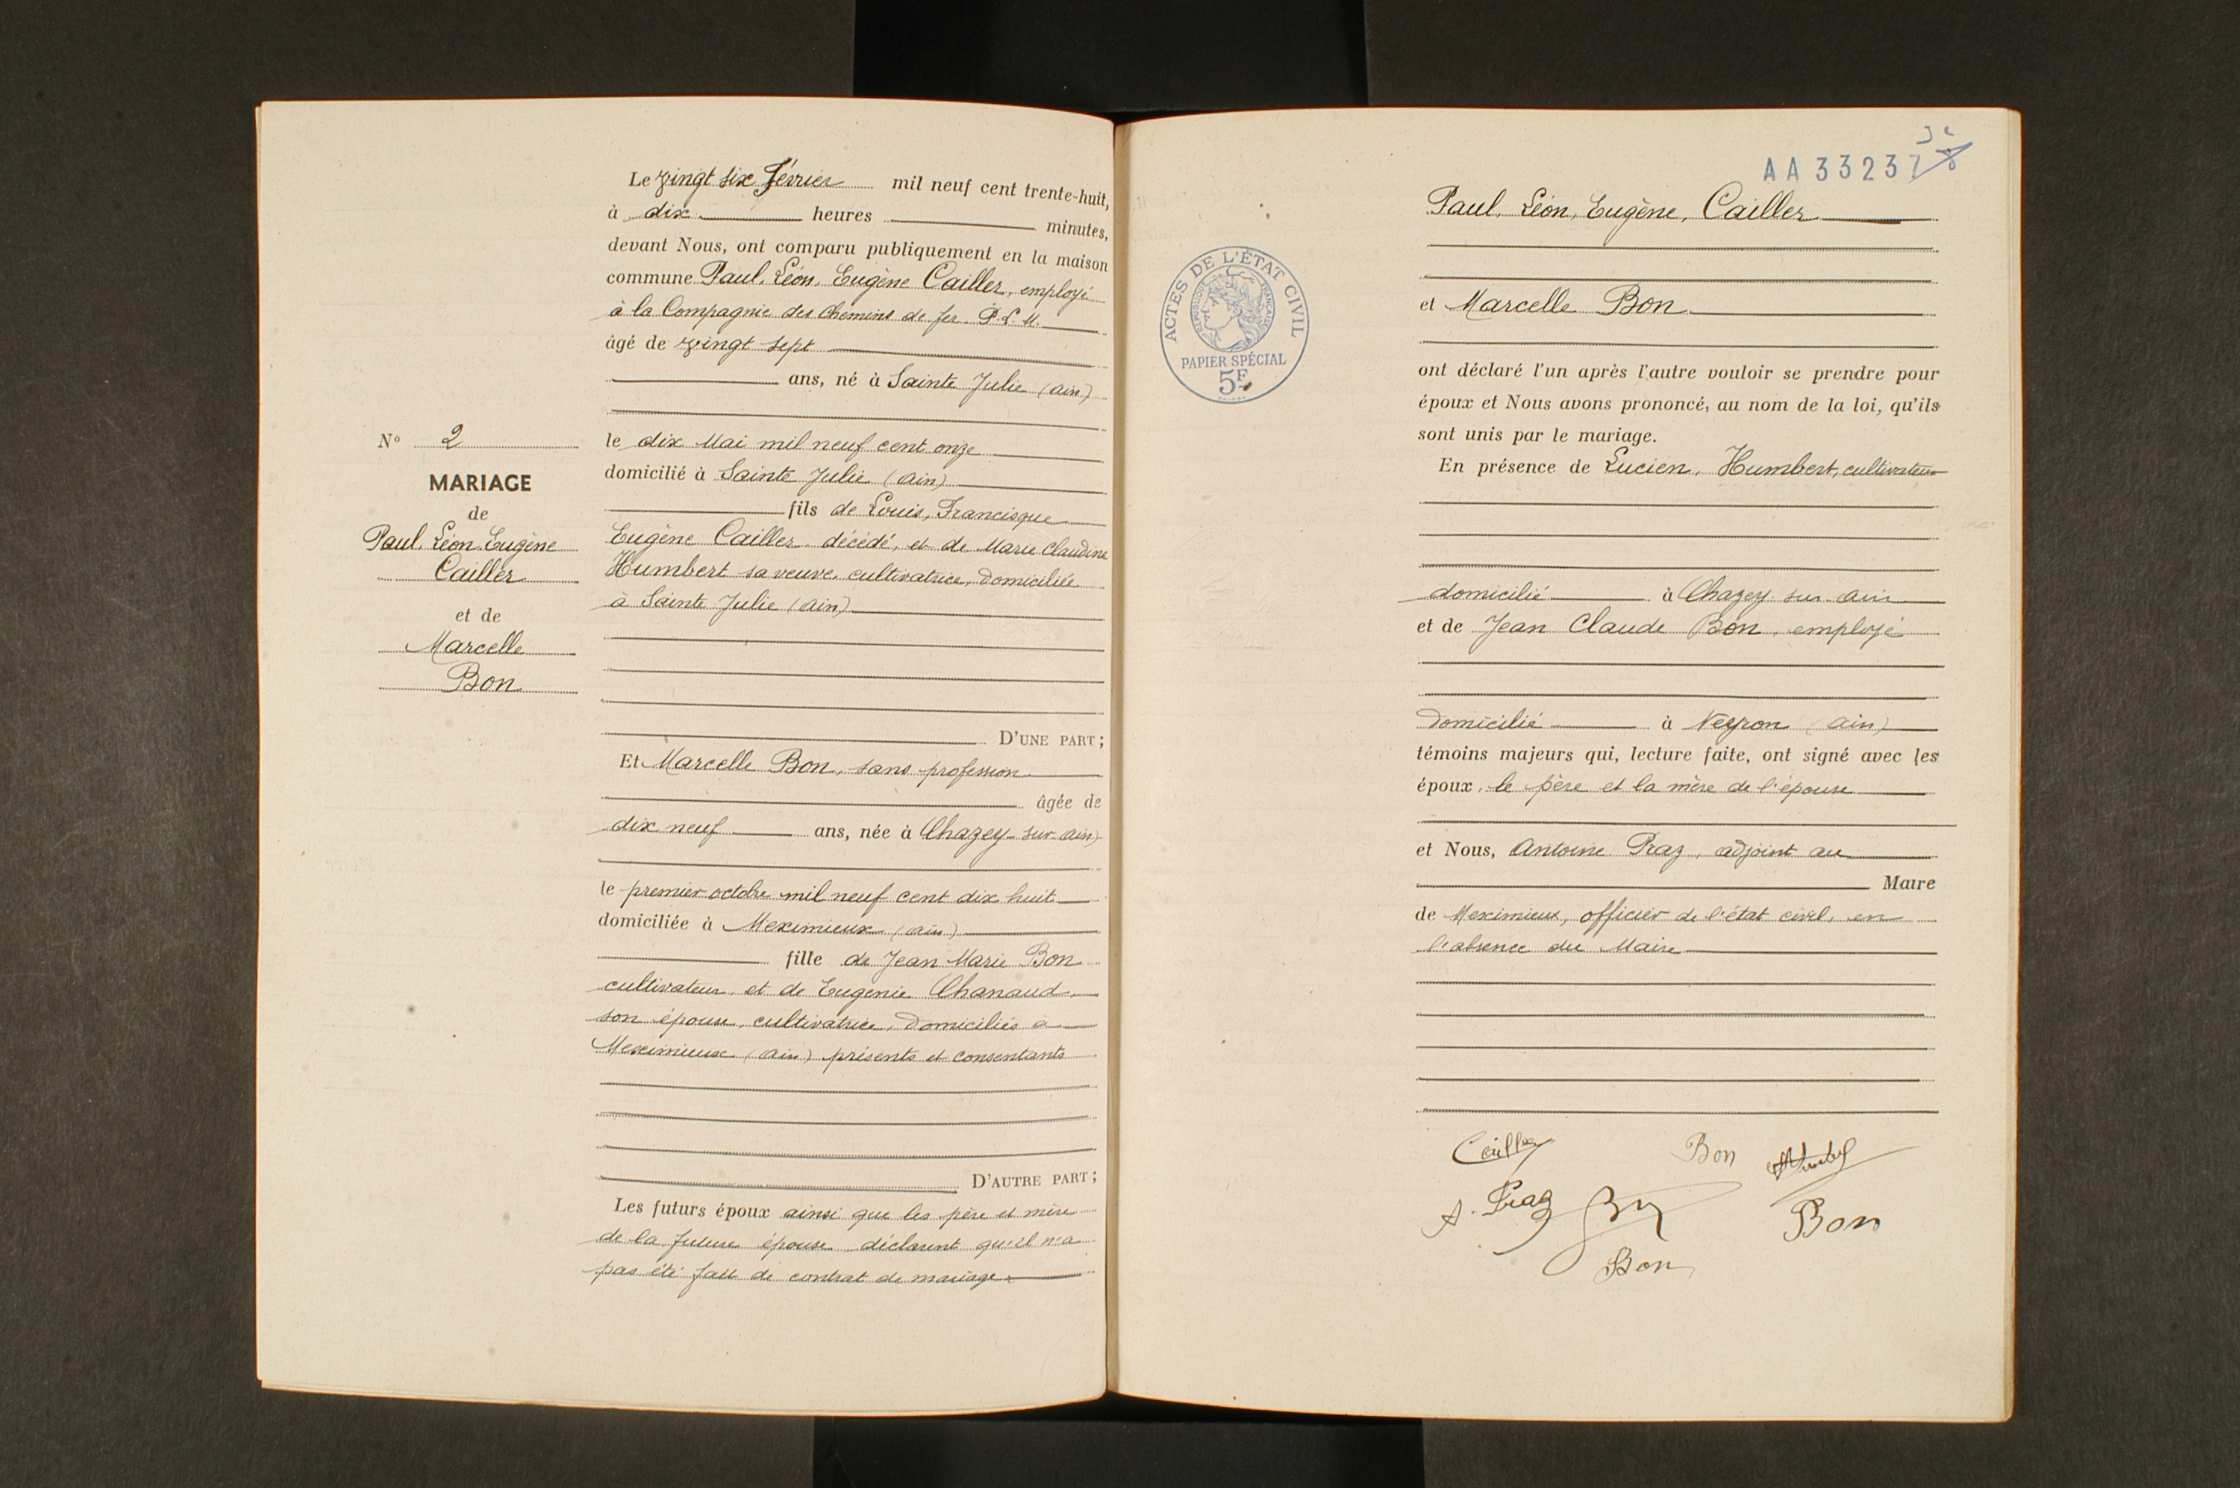 Le vingt six Février mil neuf cent trente-huit,
à dix heures minutes,
devant Nous, ont comparu publiquement en la maison
commune Paul, Léon, Eugène Cailler, employé
à la Compagnie des Chemins de fer P.L.M.
âgé de vingt sept
ans, né à Sainte Julie (Ain)
le dix Mai mil neuf cent onze
domicilié à Sainte Julie (Ain)
fils de Louis, Francisque
Eugène Cailler décédé, et de Marie Claudine
Humbert sa veuve, cultivatrice, domiciliée
à Sainte Julie (Ain)
D'UNE PART ;
Et Marcelle Bon, sans profession
âgée de
dix neuf ans, née à Chazey sur Ain)
le premier octobre mil neuf cent dix huit
domiciliée à Meximieux (Ain)
fille de Jean Marie Bon
cultivateur, et de Eugénie Chanaud
son épouse, cultivatrice, domiciliés à
Meximieux (Ain) présents et consentants
D'AUTRE PART ;
Les futurs époux ainsi que les père et mère
de la future épouse déclarent qu'il n'a
pas été fait de contrat de mariage
N° 2
MARIAGE
de
Paul, Léon, Eugène
Cailler
et de
Marcelle
Bon
AA 33237
Paul, Léon, Eugène, Cailler
et Marcelle Bon
ont déclaré l'un après l'autre vouloir se prendre pour
époux et Nous avons prononcé, au nom de la loi, qu'ils
sont unis par le mariage.
En présence de Lucien, Humbert, cultivateur
domicilié à Chazey sur Ain
et de Jean Claude Bon, employé
domicilié à Neyron (Ain)
témoins majeurs qui, lecture faite, ont signé avec les
époux, le père et la mère de l'épouse
et Nous, Antoine Praz, adjoint au
Maire
de Meximieux, officier de l'état civil, en
l'absence du Maire
ACTES DE L'ÉTAT CIVIL
RÉPUBLIQUE FRANÇAISE
PAPIER SPÉCIAL
5F
Cailler Bon Humbert
A. Praz Bon
Bon